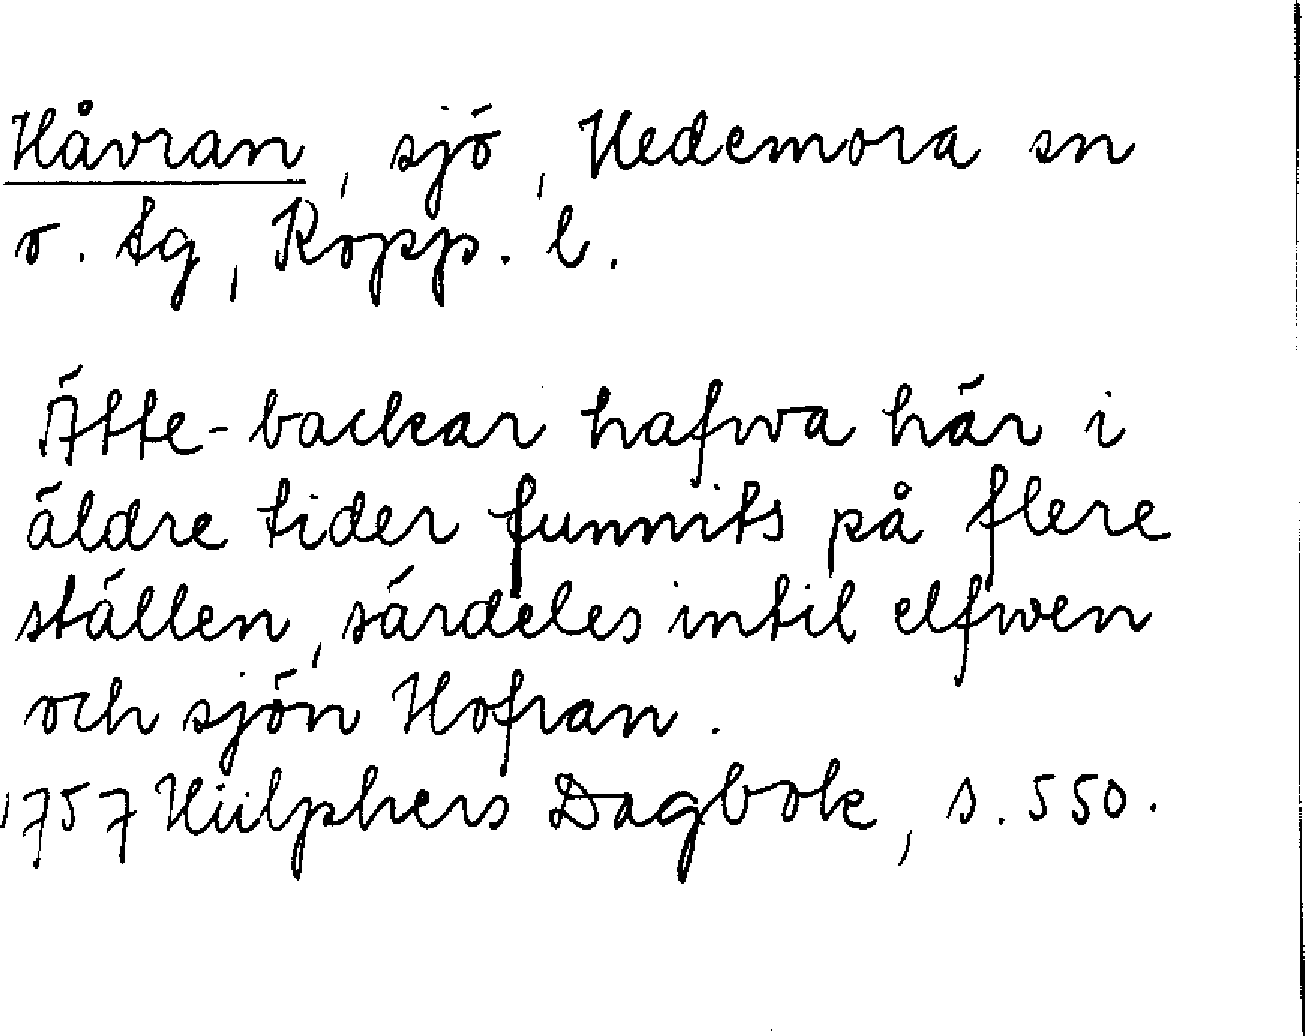 Håvran, sjö, Hedemora sn
o. tg, Kopp. l.
Ätte-backar hafwa här i
äldre tider funnits på flere
ställen, särdeles intil elfwen
och sjön Hofran.
1757 Hülphers Dagbok, s. 550.